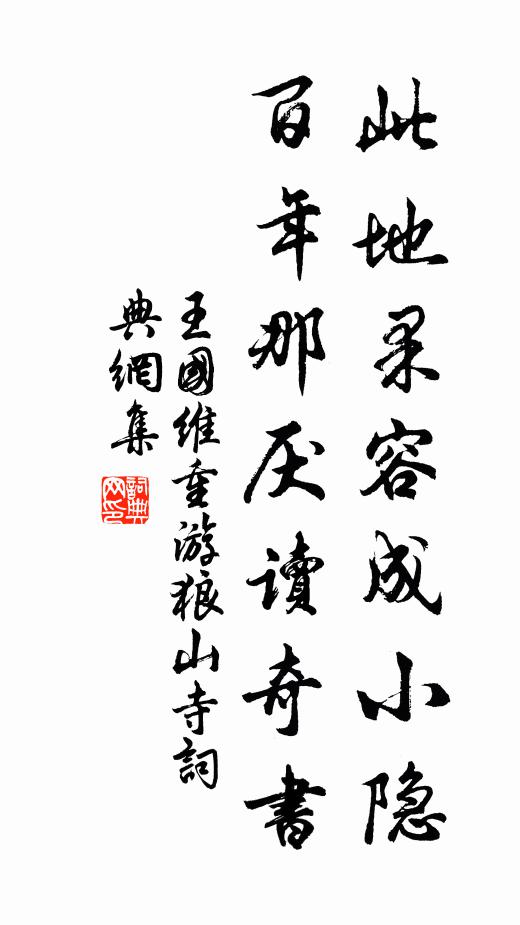 此地果容成小隐
百年那厌讀奇書
王國維重游狼山寺詞
典網集
詞典
网印